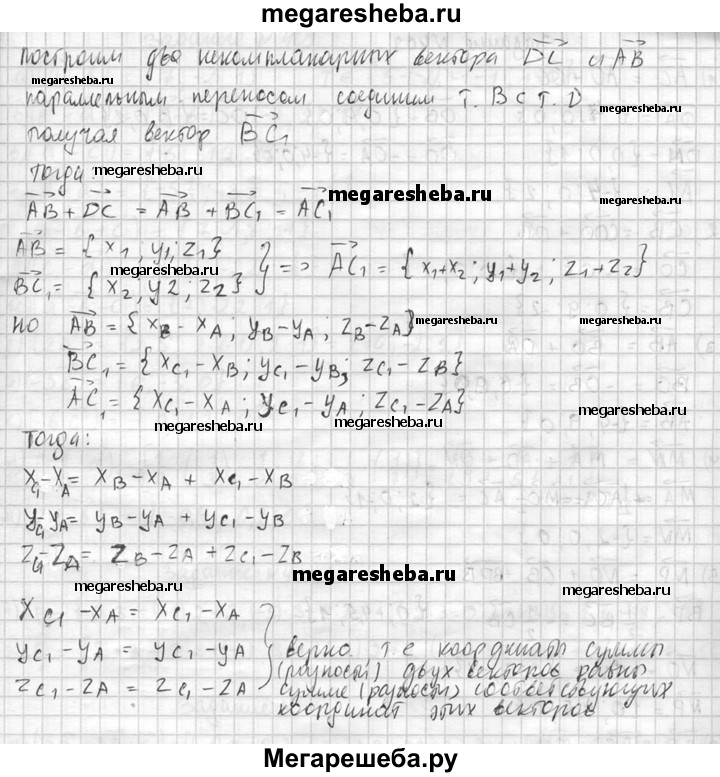 megaresheba.ru
построим два некомпланарных вектора DC и AB
megaresheba.ru
параллельным переносом соединим т. B с т. D
megaresheba.ru
получая вектор BC₁
тогда:
megaresheba.ru
megaresheba.ru
AB + DC = AB + BC₁ = AC₁
AB = {x₁; y₁; z₁}
megaresheba.ru
BC₁ = {x₂; y2; z₂} } => AC₁ = {x₁+x₂; y₁+y₂; z₁+z₂}
но AB = {x_B - x_A; y_B - y_A; z_B - z_A}
megaresheba.ru megaresheba.ru
BC₁ = {x_C₁ - x_B; y_C₁ - y_B; z_C₁ - z_B}
AC₁ = {x_C₁ - x_A; y_C₁ - y_A; z_C₁ - z_A}
megaresheba.ru megaresheba.ru megaresheba.ru
тогда:
x_C₁ - x_A = x_B - x_A + x_C₁ - x_B
y_C₁ - y_A = y_B - y_A + y_C₁ - y_B
z_C₁ - z_A = z_B - z_A + z_C₁ - z_B
megaresheba.ru
megaresheba.ru megaresheba.ru
x_C₁ - x_A = x_C₁ - x_A
y_C₁ - y_A = y_C₁ - y_A
z_C₁ - z_A = z_C₁ - z_A
} верно т.е координаты суммы
(разности) двух векторов равны
сумме (разности) соответствующих
координат этих векторов
Мегарешеба.ру